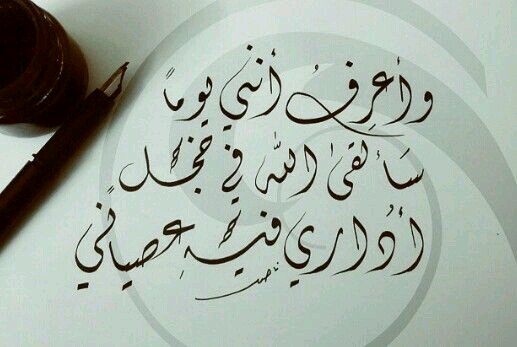 وأعرِفُ أنني يوماً
سَألقىٰ اللّٰه في خجل
أُداري فيهِ عصياني